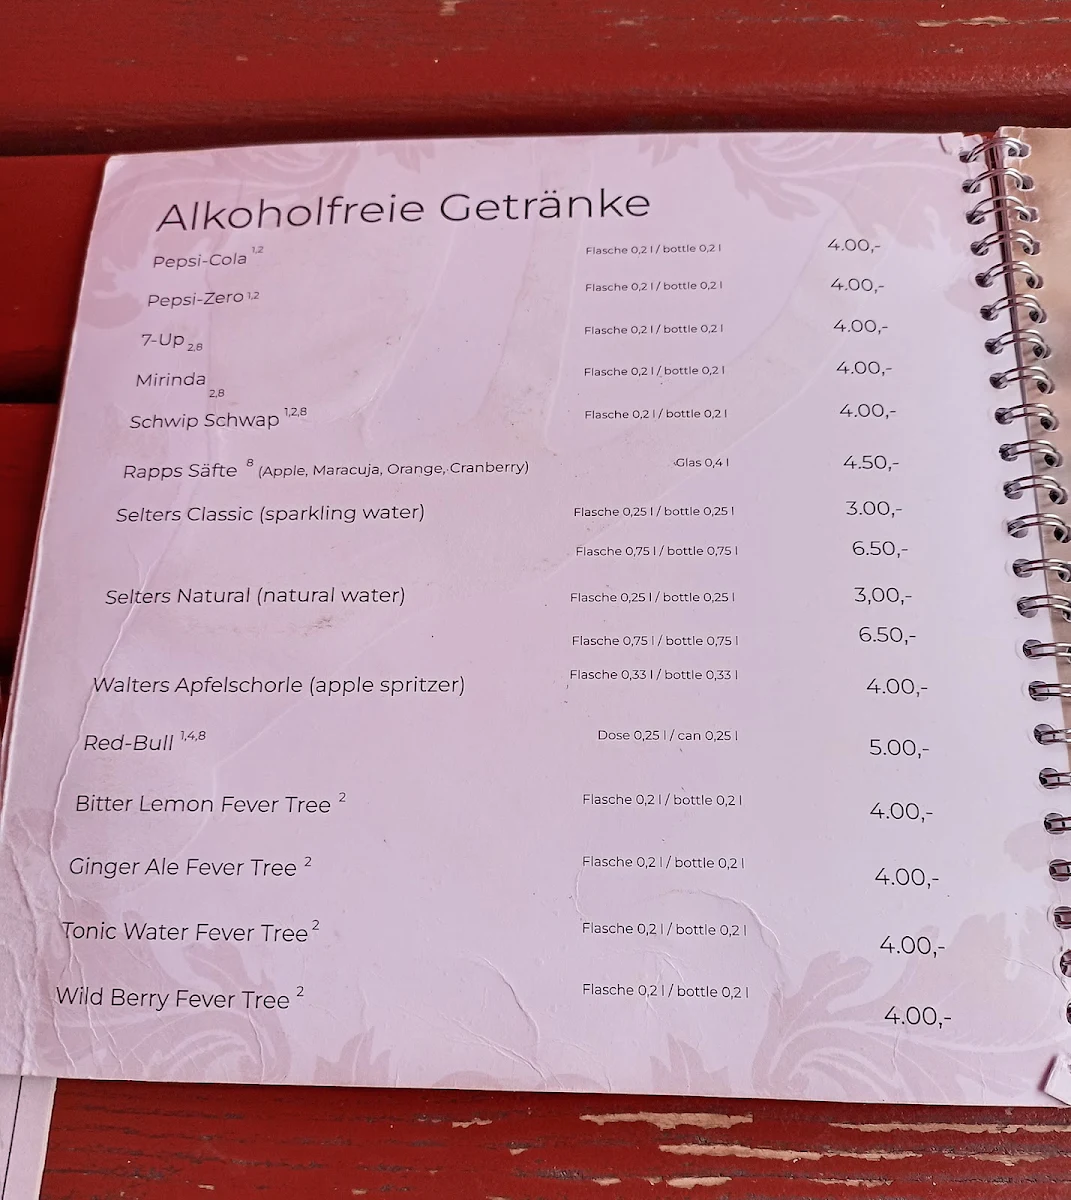 Alkoholfreie Getränke
Pepsi-Cola 1,2 Flasche 0,2 l / bottle 0,2 l 4.00,-
Pepsi-Zero 1,2 Flasche 0,2 l / bottle 0,2 l 4.00,-
7-Up 2,8 Flasche 0,2 l / bottle 0,2 l 4.00,-
Mirinda 2,8 Flasche 0,2 l / bottle 0,2 l 4.00,-
Schwip Schwap 1,2,8 Flasche 0,2 l / bottle 0,2 l 4.00,-
Rapps Säfte 8 (Apple, Maracuja, Orange, Cranberry) Glas 0,4 l 4.50,-
Selters Classic (sparkling water) Flasche 0,25 l / bottle 0,25 l 3.00,-
Flasche 0,75 l / bottle 0,75 l 6.50,-
Selters Natural (natural water) Flasche 0,25 l / bottle 0,25 l 3,00,-
Flasche 0,75 l / bottle 0,75 l 6.50,-
Walters Apfelschorle (apple spritzer) Flasche 0,33 l / bottle 0,33 l 4.00,-
Red-Bull 1,4,8 Dose 0,25 l / can 0,25 l 5.00,-
Bitter Lemon Fever Tree 2 Flasche 0,2 l / bottle 0,2 l 4.00,-
Ginger Ale Fever Tree 2 Flasche 0,2 l / bottle 0,2 l 4.00,-
Tonic Water Fever Tree 2 Flasche 0,2 l / bottle 0,2 l 4.00,-
Wild Berry Fever Tree 2 Flasche 0,2 l / bottle 0,2 l 4.00,-